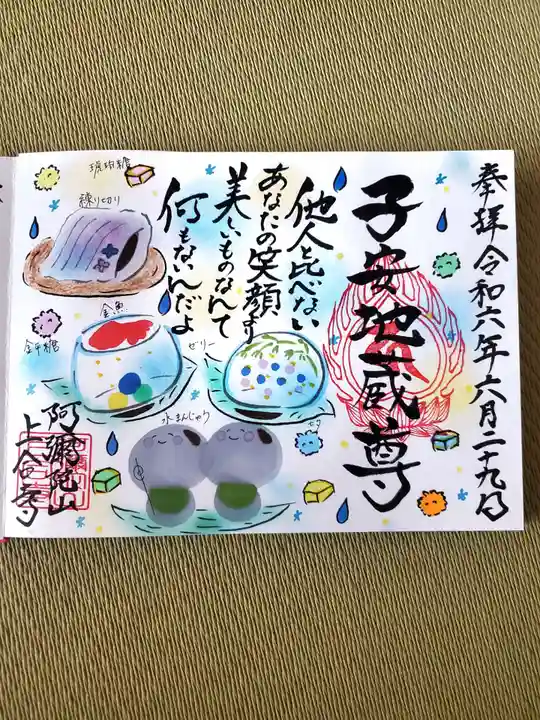 奉拝 令和六年六月二十九日
子安地蔵尊
他人と比べない
あなたの笑顔ほす
美しいものなんて
何もないんだよ
琥珀糖
練り切り
金魚
ゼリー
金平糖
水まんじゅう
阿彌陀山
上合寺